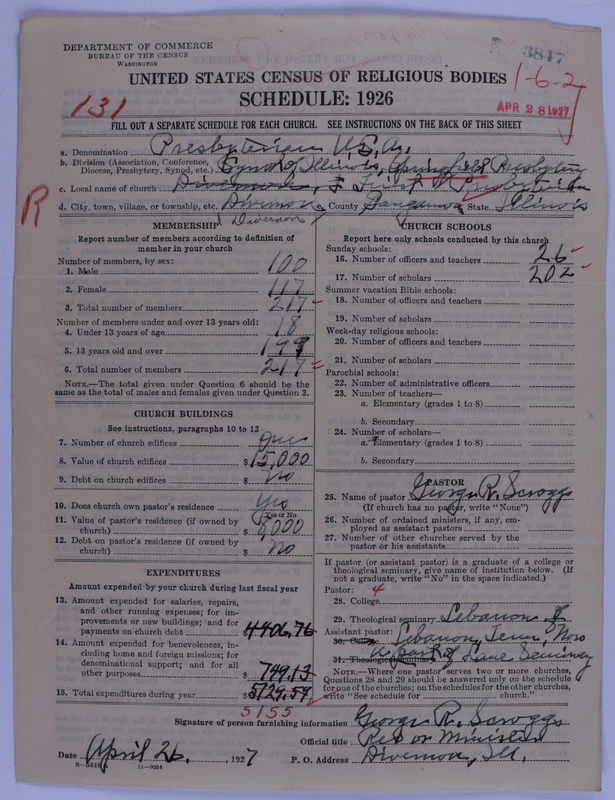 DEPARTMENT OF COMMERCE
BUREAU OF THE CENSUS
WASHINGTON
3847
UNITED STATES CENSUS OF RELIGIOUS BODIES
1-6-2
SCHEDULE: 1926
131
APR 28 1927
FILL OUT A SEPARATE SCHEDULE FOR EACH CHURCH. SEE INSTRUCTIONS ON THE BACK OF THIS SHEET
a. Denomination Presbyterian U.S.A.
b. Division (Association, Conference, Diocese, Presbytery, Synod, etc.) Synod of Illinois, Springfield Presbytery
c. Local name of church Divernon, First Presbyterian
R
d. City, town, village, or township, etc. Divernon e. County Sangamon State Illinois
Divernon
MEMBERSHIP
Report number of members according to definition of
member in your church
Number of members, by sex:
1. Male 100
2. Female 117
3. Total number of members 217
Number of members under and over 13 years old:
4. Under 13 years of age 18
5. 13 years old and over 199
6. Total number of members 217
NOTE.—The total given under Question 6 should be the
same as the total of males and females given under Question 3.
CHURCH BUILDINGS
See instructions, paragraphs 10 to 12
7. Number of church edifices one
8. Value of church edifices $15,000
9. Debt on church edifices $ No
10. Does church own pastor's residence Yes
Yes or No
11. Value of pastor's residence (if owned by
church) $ 000
12. Debt on pastor's residence (if owned by
church) $ No
EXPENDITURES
Amount expended by your church during last fiscal year
13. Amount expended for salaries, repairs,
and other running expenses; for im-
provements or new buildings; and for
payments on church debt $4406.76
14. Amount expended for benevolences, in-
cluding home and foreign missions; for
denominational support; and for all
other purposes $749.13
15. Total expenditures during year $
5155
CHURCH SCHOOLS
Report here only schools conducted by this church
Sunday schools:
16. Number of officers and teachers 26
17. Number of scholars 202
Summer vacation Bible schools:
18. Number of officers and teachers
19. Number of scholars
Week-day religious schools:
20. Number of officers and teachers
21. Number of scholars
Parochial schools:
22. Number of administrative officers
23. Number of teachers—
a. Elementary (grades 1 to 8)
b. Secondary
24. Number of scholars—
a. Elementary (grades 1 to 8)
b. Secondary
PASTOR
25. Name of pastor George R. Scroggs
(If church has no pastor, write "None")
26. Number of ordained ministers, if any, em-
ployed as assistant pastors
27. Number of other churches served by the
pastor or his assistants
If pastor (or assistant pastor) is a graduate of a college or
theological seminary, give name of institution below. (If
not a graduate, write "No" in the space indicated.)
Pastor: 4
28. College
29. Theological seminary Lebanon
Assistant pastor:
30. College Lebanon, Tenn, Now
31. Theological seminary a part of Lane Seminary
NOTE.—Where one pastor serves two or more churches,
Questions 28 and 29 should be answered only on the schedule
for one of the churches; on the schedules for the other churches,
write "See schedule for church."
Signature of person furnishing information George R. Scroggs
Official title Minister
Date April 26, 1927 P. O. Address Divernon, Ill.
8-5518 11-9084